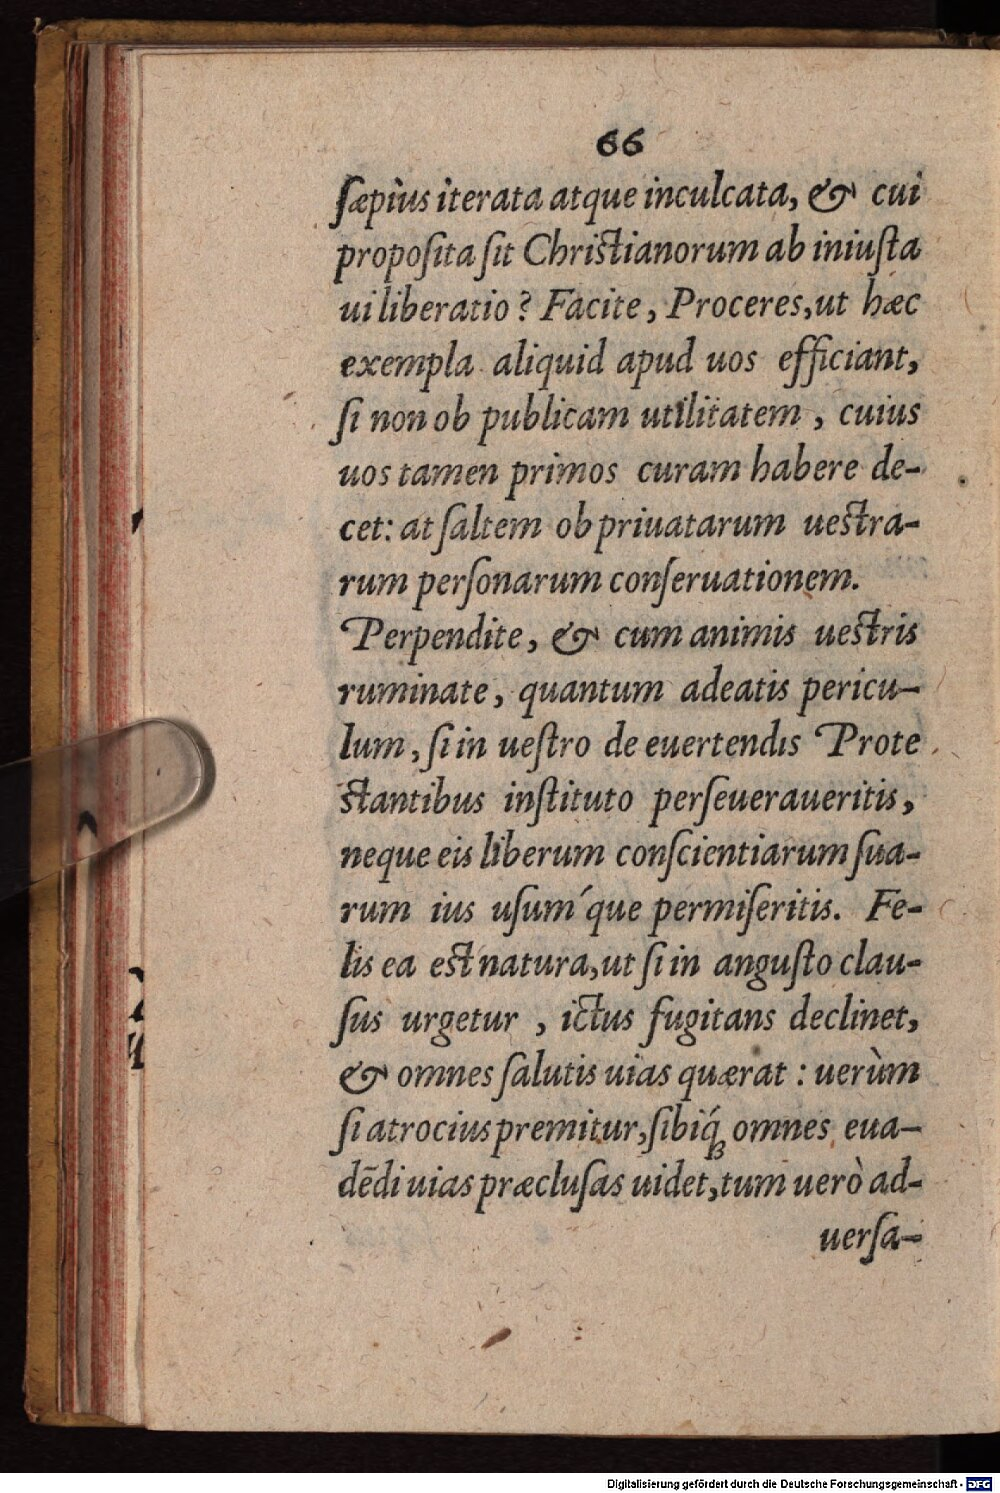 66
ſæpiùs iterata atque inculcata, & cui
propoſita ſit Chriſtianorum ab iniuſta
ui liberatio? Facite, Proceres, ut hæc
exempla aliquid apud uos efficiant,
ſi non ob publicam utilitatem, cuius
uos tamen primos curam habere de-
cet: at ſaltem ob priuatarum ueſtra-
rum perſonarum conſeruationem.
Perpendite, & cum animis ueſtris
ruminate, quantum adeatis pericu-
lum, ſi in ueſtro de euertendis Prote
ſtantibus inſtituto perſeueraueritis,
neque eis liberum conſcientiarum ſua-
rum ius uſum´que permiſeritis. Fe-
lis ea eſt natura, ut ſi in anguſto clau-
ſus urgetur, ictus fugitans declinet,
& omnes ſalutis uias quærat: uerùm
ſi atrocius premitur, ſibiq́; omnes eua-
dēdi uias præcluſas uidet, tum uerò ad-
uerſa-
Digitalisierung gefördert durch die Deutsche Forschungsgemeinschaft - DFG